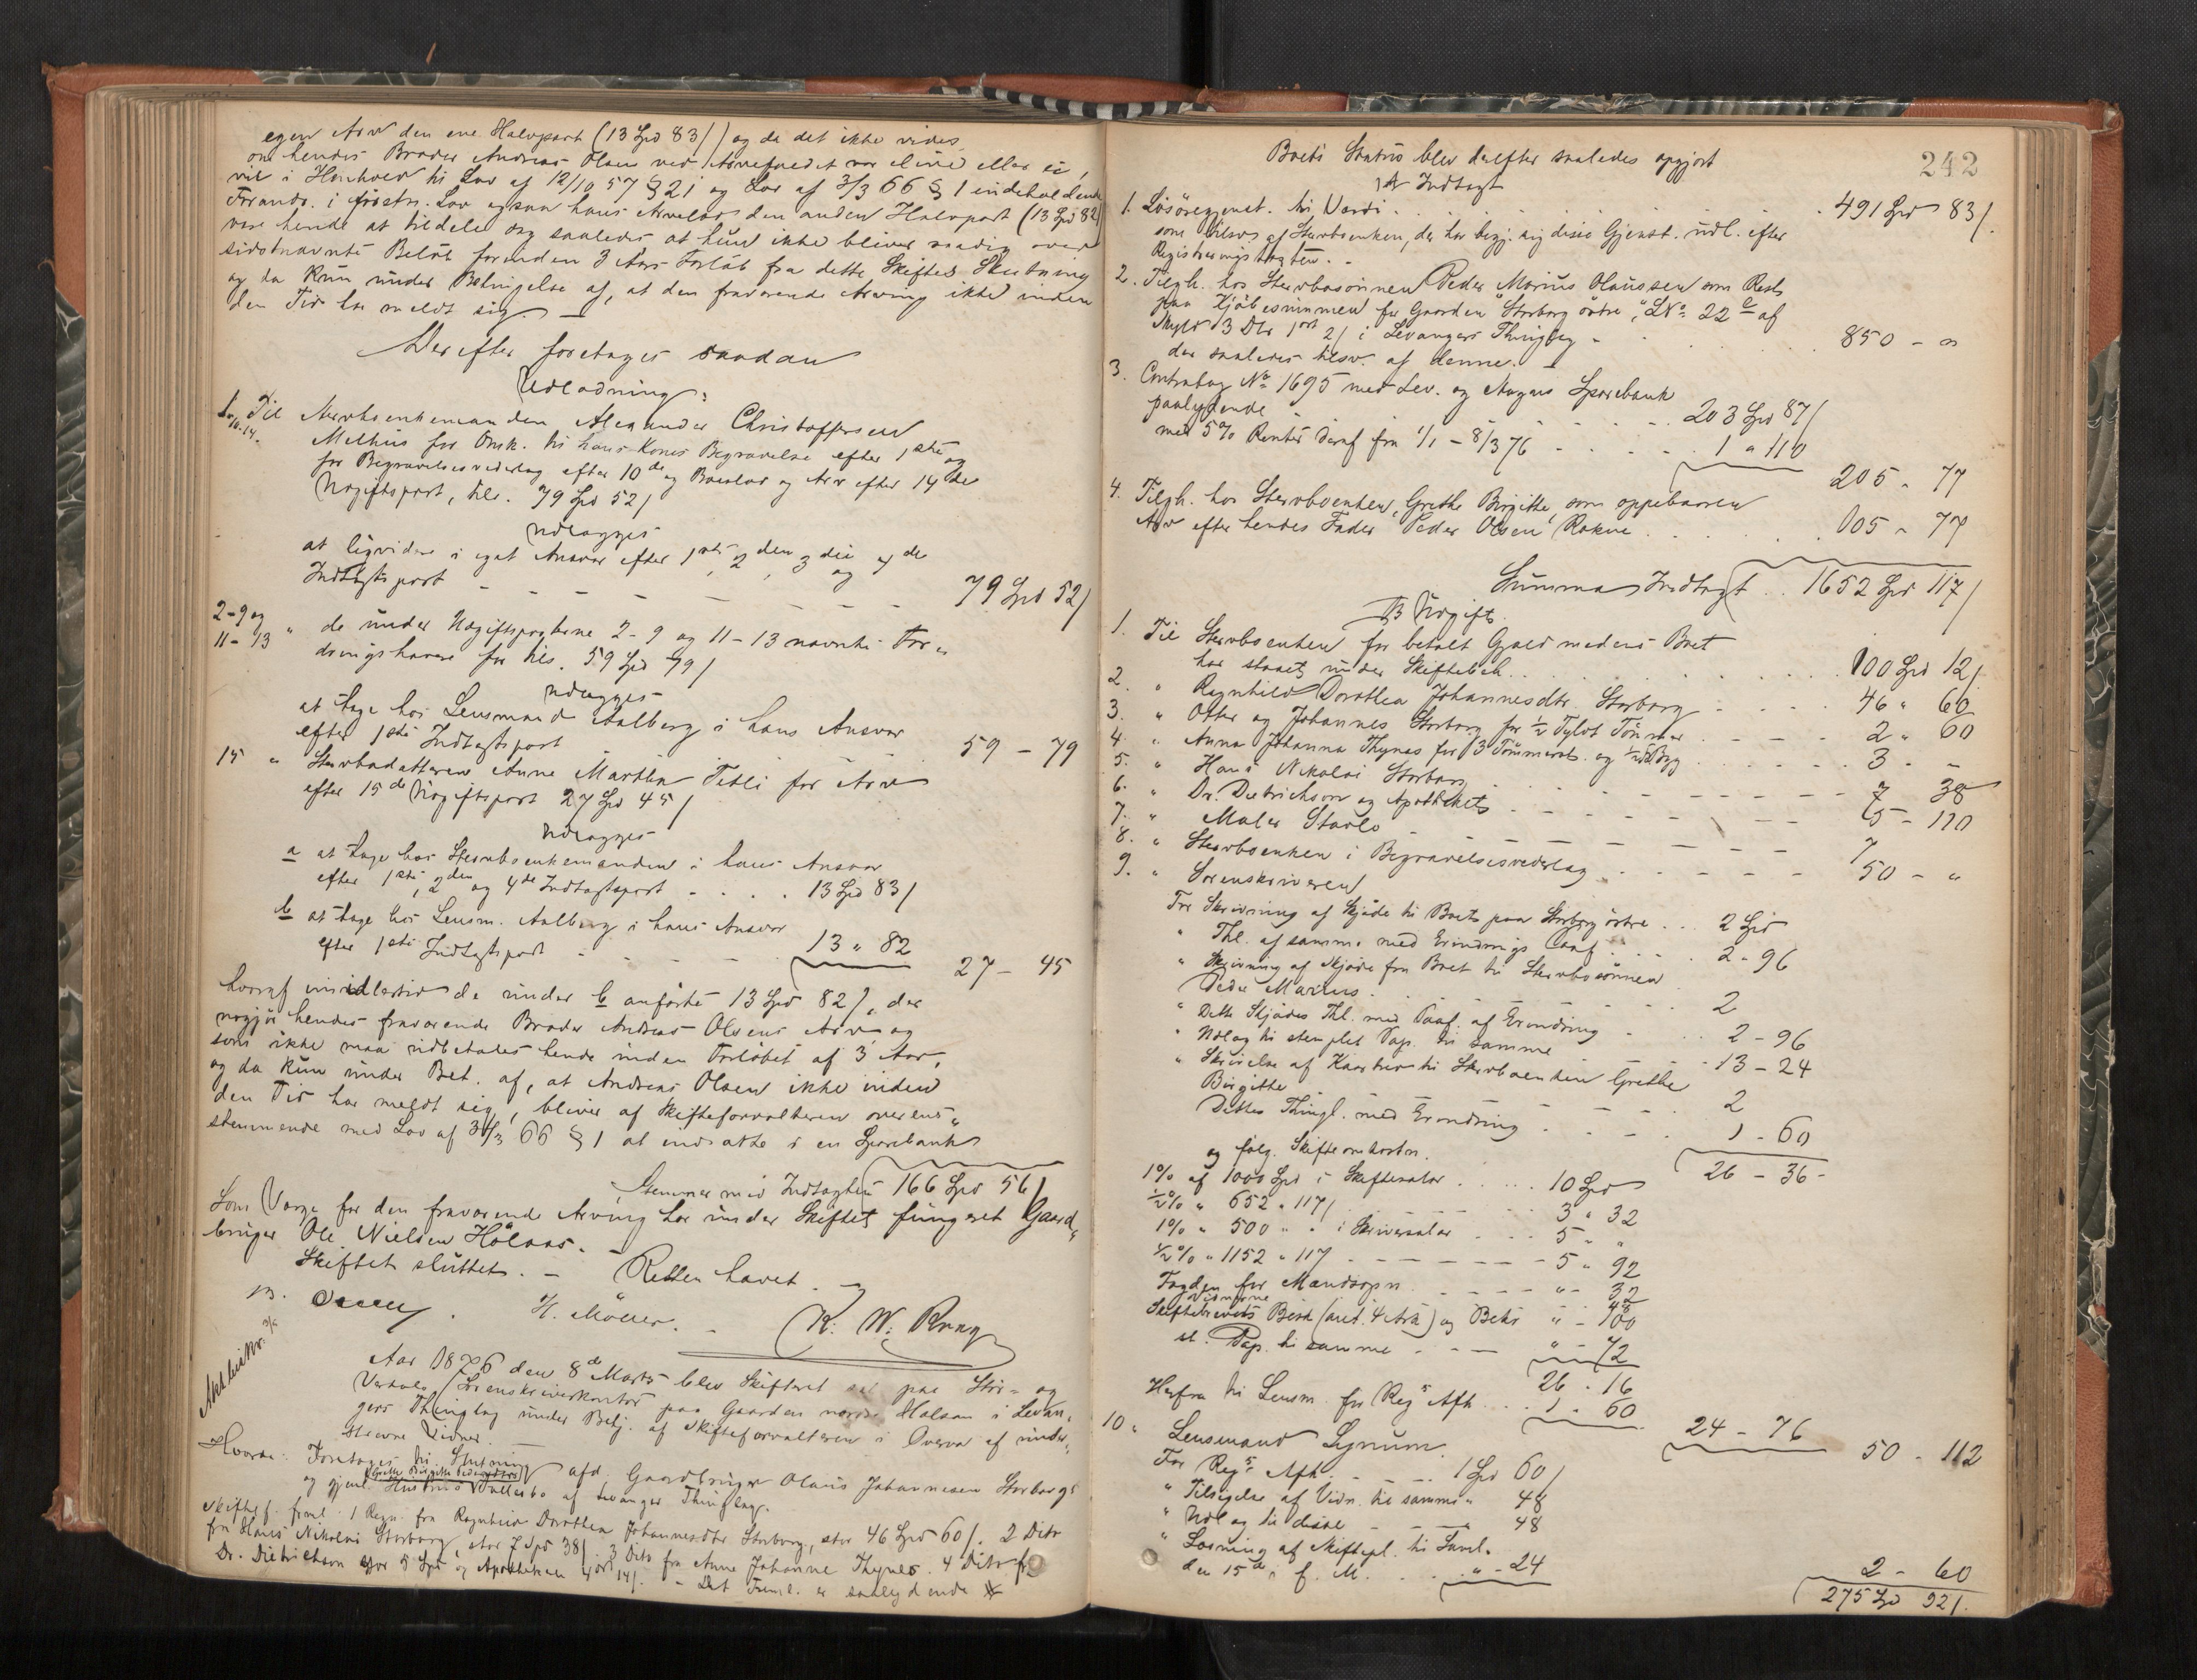 egen Arv den ene Halvpart (13 Spd 83/) og da det ikke vides
om hendes Broder Andreas Olsen ved Arvefaldet var ilive eller ei,
vil i Henhold til Lov af 12/10 57 § 21 og Lov af 3/3 66 § 1 indeholdende
Forandr. i førstn. Lov ogsaa hans Arvelod den anden Halvpart (13 Spd 82/)
være hende at tildele dog saaledes at hun ikke bliver raadig over
sidstnævnte Beløb forinden 3 Aars Forløb fra dette Skiftes Slutning
og da kun under Betingelse af, at den fraværende Arving ikke inden
den Tid har meldt sig. —
Derefter foretages saadan
Udlodning:
1, 10. 14. Til Stervboenkemanden Alexander Christoffersen
Melhus for Omk. til hans Kones Begravelse efter 1ste og
for Begravelsesvederlag efter 10de og Boeslod og Arv efter 14de
Udgiftspost, tils. 79 Spd 52/
udlægges
at liqvidere i eget Ansvar efter 1ste, 2den, 3die og 4de
Indtægtspost 79 Spd 52/
2-9 og 11-13 " de under Udgiftsposterne 2-9 og 11-13 nævnte For-
dringshavere for tils. 59 Spd 79/
udlægges
at tage hos Lensmand Aalberg i hans Ansvar
efter 1ste Indtægtspost 59 - 79
15 " Stervbodatteren Anne Martha Tetli for Arv
efter 15de Udgiftspost 27 Spd 45/
udlægges
a at tage hos Stervboenkemanden i hans Ansvar
efter 1ste, 2den og 4de Indtægtspost 13 Spd 83/
b at tage hos Lensm. Aalberg i hans Ansvar
efter 1ste Indtægtspost 13 " 82
27 - 45
hvoraf imidlertid de under b anførte 13 Spd 82/, der
udgjør hendes fraværende Broder Andreas Olsens Arv og
som ikke maa udbetales hende inden Forløbet af 3 Aar,
og da kun under Bet. af, at Andreas Olsen ikke inden
den Tid har meldt sig, bliver af Skifteforvalteren overens-
stemmende med Lov af 3/3 66 § 1 at indsætte i en Sparebank
Stemmer med Indtægten 166 Spd 56/
Som Værge for den fraværende Arving har under Skiftet fungeret Gaard-
bruger Ole Nielsen Hölaas.
Skiftet sluttet. — Retten hævet. —
H. Möller. K. W. Krag
Aar 1876 den 8de Marts blev Skifteret sat paa Stör- og
Værdals Sorenskriverkontor paa Gaarden nordre Halsan i Levan-
gers Thinglag under Betj. af Skifteforvalteren i Overvær af under-
skrevne Vidner.
Hvorda: Foretages til Slutning afd. Gaardbruger Olaus Johannesen Storborgs
og gjenl. Hustru Grethe Birgitte Pedersdatters Fællesbo af Levanger Thinglag.
Skiftef. freml. 1 Regn. fra Ragnhild Dorothea Johannesdtr Storborg, stor 46 Spd 60/. 2 Dito
fra Hans Nikolai Storborg, stor 7 Spd 38/. 3 Dito fra Anne Johanne Thynes. 4 Dito fr
Dr. Dietrichson stor 5 Spd og Apotheken 4 ort 14/. - Det Freml. er saalydende
242
Boets Status blev derefter saaledes opgjort
A Indtægt
1. Lösöregjenst. til Værdi 491 Spd 83/.
som tilsv. af Stervboenken, der har begj. sig disse Gjenst. udl. efter
Registreringstaxten. -
2. Tilgh. hos Stervbosønnen Peder Marius Olaussen som Rest
paa Kjöbesummen for Gaarden "Storborg östre", LNo 22 a af
Skyld 3 Dlr 1 ort 2/ i Levangers Thinglag - 850 - "
der saaledes tilsv. af denne. —
3. Contrabog No 1695 med Lev. og Skognes Sparebank
paalydende 203 Spd 87/
med 5% Renter deraf fra 1/1 - 8/3 76 1 " 110
205 " 77
4. Tilgh. hos Stervboenken, Grethe Birgitte, som oppebaaren
Arv efter hendes Fader Peder Olsen Rokne 105 " 77
Summa Indtægt 1652 Spd 117/
B Udgift.
1. Til Stervboenken for betalt Gjæld medens Boet
har staaet under Skiftebeh. 100 Spd 12/
2. " Ragnhild Dorothea Johannesdtr. Storborg 46 " 60
3. " Otter og Johannes Storborg for 1/2 Tylvt Tömmer 2 " 60
4. " Anna Johanna Thynes for 3 Tömmerst. og 1/2 Td. Byg 3 - -
5. " Hans Nikolai Storborg 7 38
6. " Dr. Dietrichson og Apotheket 5 - 110
7. " Maler Stavlo 7
8. " Stervboenken i Begravelsesvederlag 50 - "
9. " Sorenskriveren
For Skrivning af Skjöde til Boet paa Storborg östre 2 Spd
" Thl. af samme med Erindrings Paaf. 2 - 96
" Skrivning af Skjöde fra Boet til Stervbosønnen
Peder Marius 2
" Dette Skjödes Thl. med Paaf. af Erindring 2 - 96
" Udlag til stemplet Pap. til samme 13 - 24
" Skrivelse af Kaarbrev til Stervboenken Grethe
Birgitte 2
" Dettes Thingl. med Erindring 1 - 60
26 - 36 -
og følg. Skifteomkostn.
1% af 1000 Spd i Skiftesalær 10 Spd
1/2% " 652 " 117/ 3 " 32
1% " 500 " " i Skriversalær 5 " "
1/2% " 1152 " 117 5 " 92
Fogden for Mandsopn. " - 32
Vidnerne 48
Skiftebrevets Besk. (anst. 4 Ark) og Bekr. " - 100
st. Pap. til samme " - 72
26 - 16
Herfra til Lensm. for Regs Afh. 1 - 60
24 - 76
50 - 112
10 " Lensmand Lynum
For Regs Afh. 1 Spd 60/
" Tilsigelse af Vidn. til samme " 48
" Udlag til disse 48
" Læsning af Skiftepl. til Saml.
den 15de f. M. " - 24
2 - 60
275 Spd 92/.